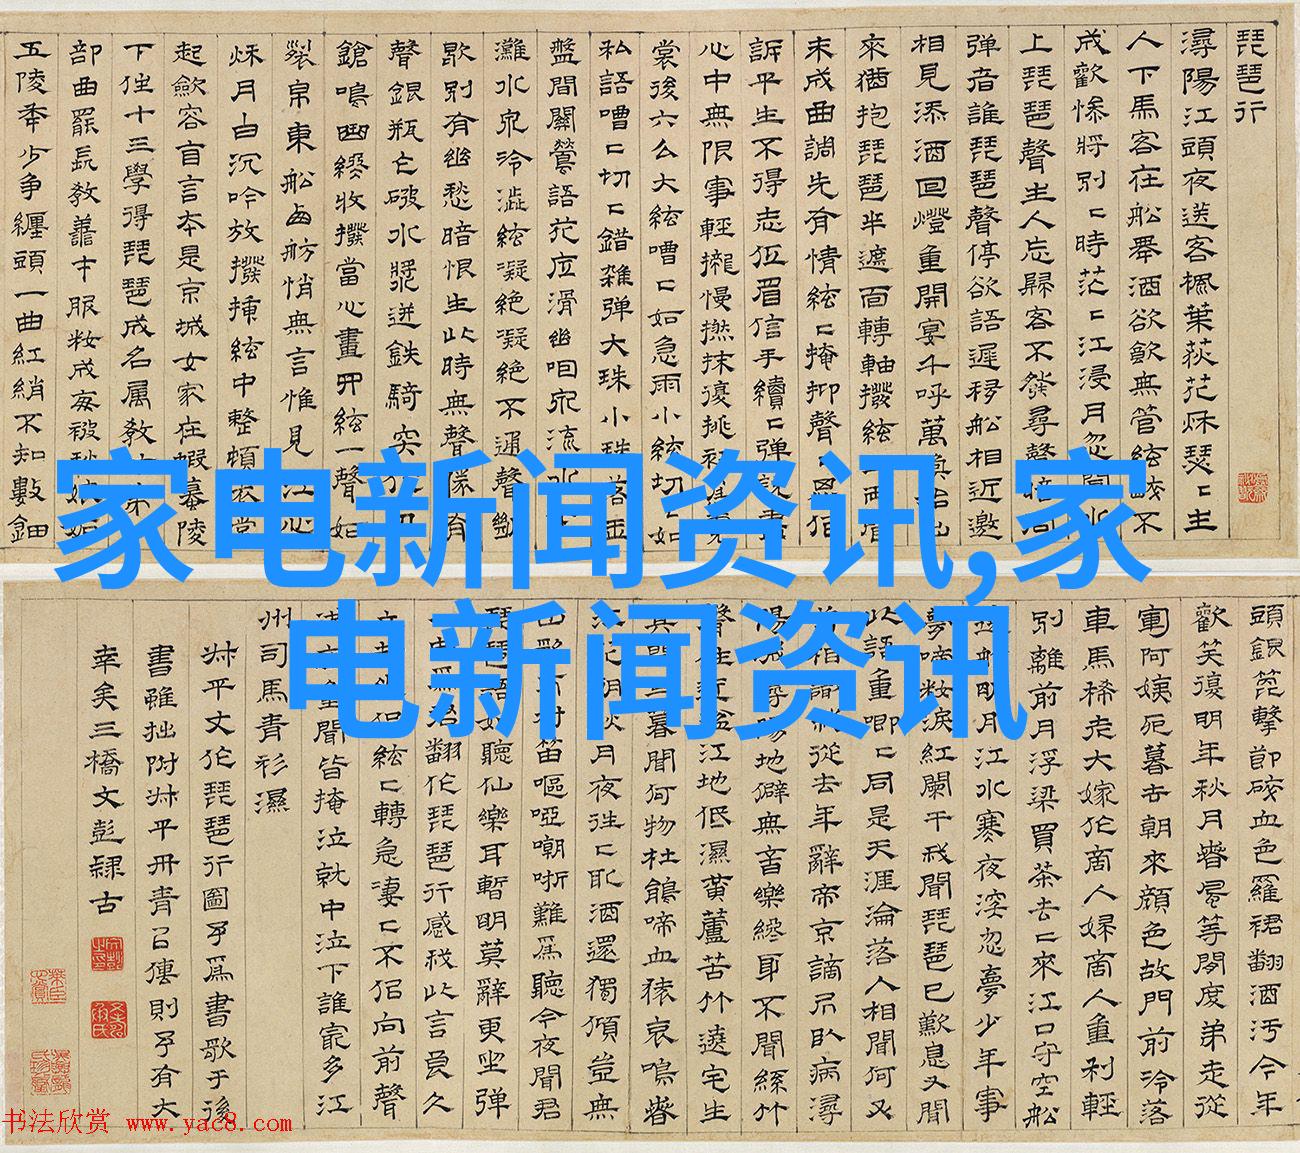 琵琶行
潯陽江頭夜送客楓葉荻花秋瑟〻主
人下馬客在船舉酒欲飲無管絃醉不
成歡慘將別〻時茫〻江浸月忽聞水
上琵琶聲主人忘歸客不發尋聲暗問
彈者誰琵琶聲停欲語遲移船相近邀
相見添酒回燈重開宴千呼萬喚始出
來猶抱琵琶半遮面轉軸撥絃三兩聲
未成曲調先有情絃〻掩抑聲〻思似
訴平生不得志低眉信手續〻彈說盡
心中無限事輕攏慢撚抹復挑初為霓
裳後六么大絃嘈〻如急雨小絃切〻如
私語嘈〻切〻錯雜彈大珠小珠落玉
盤間關鶯語花底滑幽咽泉流水下
灘水泉冷澁絃凝絕凝絕不通聲蹔
歇別有幽愁暗恨生此時無聲勝有
聲銀瓶乍破水漿迸鉄騎突出刀
鎗鳴曲終收撥當心畫四絃一聲如
裂帛東船西舫悄無言惟見江心
秋月白沉吟放撥插絃中整頓衣裳
起斂容自言本是京城女家在蝦蟇陵
下住十三學得琵琶成名屬教坊第一
部曲罷長教善才服粧成每被秋娘妬
五陵年少爭纏頭一曲紅綃不知數鈿
家电新闻资讯,家
电新闻资讯
頭銀篦擊節碎血色羅裙翻酒污今年
歡笑復明年秋月春風等閒度弟走從
軍阿姨死暮去朝來顏色故門前冷落
車馬稀老大嫁作商人婦商人重利輕
別離前月浮梁買茶去〻來江口守空船
遶船明月江水寒夜深忽夢少年事
夢啼粧淚紅闌干我聞琵琶已歎息又聞
此語重唧〻同是天涯淪落人相聞何必
曾相識我從去年辭帝京謫居臥病潯
陽城潯陽地僻無音樂終歲不聞絲竹
聲住近湓江地低濕黃蘆苦竹遶宅生
其間旦暮聞何物杜鵑啼血猿哀鳴春
江花朝秋月夜往〻取酒還獨傾豈無
山歌與村笛嘔啞嘲哳難為聽今夜聞君
琵琶語如聽仙樂耳暫明莫辭更坐彈
一曲為君翻作琵琶行感我此言良久
立却坐促絃〻轉急淒〻不似向前聲
滿座重聞皆掩泣就中泣下誰最多江
州司馬青衫濕
叔平丈作琵琶行圖予為書歌于後
書雖拙附叔平丹青以傳則予有大
幸矣三橋文彭隸古
书法欣赏 www.yac8.com